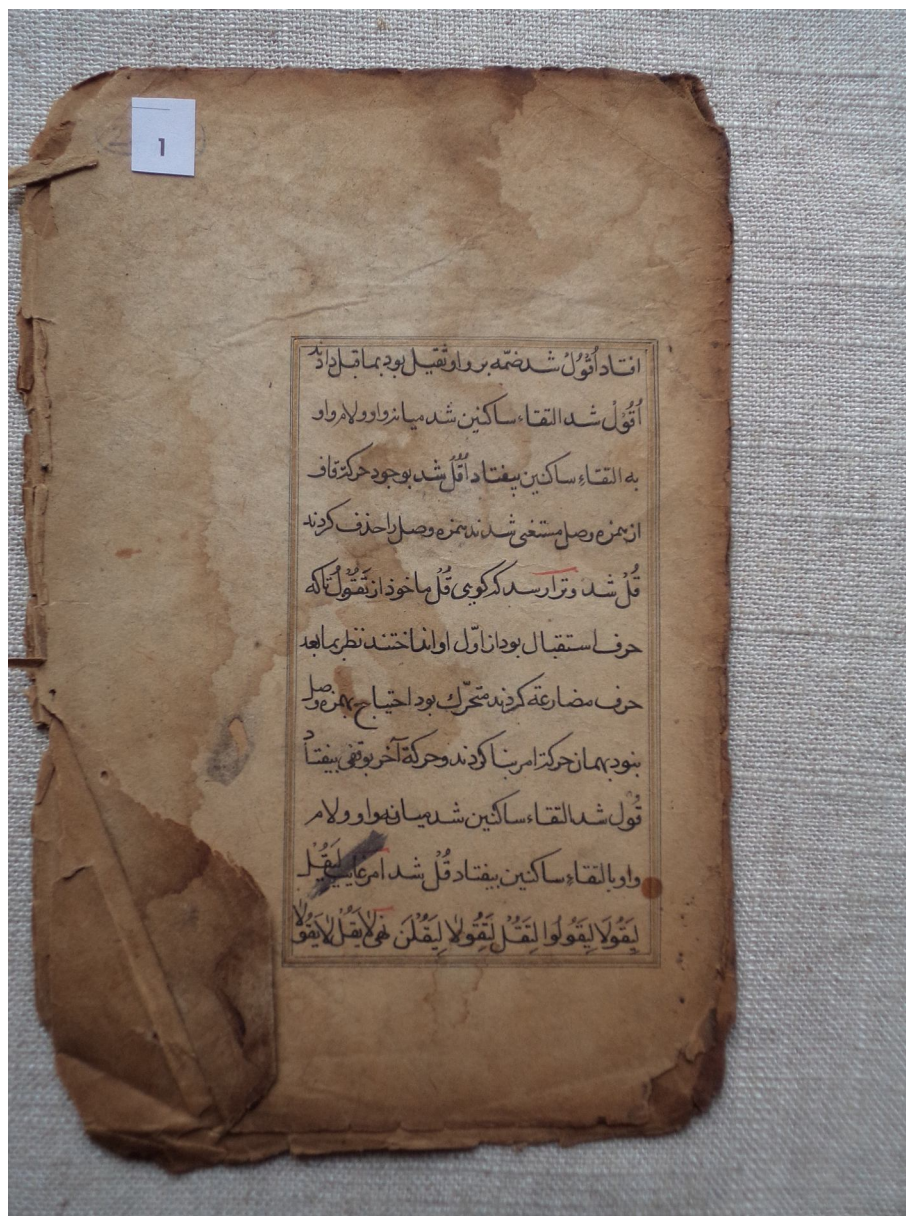 1
افتاد اُقْوُلْ شد ضمّه بر واو ثقیل بود بما قبل دادند
اُقُوْلْ شد التقاء ساکنین شد میانه واو و لام واو
به التقاءِ ساکنین بیفتاد اُقُلْ شد بوجود حرکة قاف
از همزه وصل مستغنی شدند همزه وصل را حذف کردند
قُلْ شد و ترا رسد که کوئی قُلْ ماخوذ از تَقُوْلُ تا که
حرف استقبال بود از اوّل او انداختند نظر بما بعد
حرف مضارعة کردند متحرّک بود احتیاج بهمزه وصل
نبود بهمان حرکة امر بنا کردند و حرکة آخر بوقفی بیفتاد
قُوْلْ شد التقاء ساکنین شد میانه واو و لام
واو بالتقاءِ ساکنین بیفتاد قُلْ شد امر غایب لِیَقُلْ
لِیَقُوْلَا لِیَقُوْلُوا لِتَقُلْ لِتَقُوْلَا لِیَقُلْنَ نهی لَایَقُلْ لَایَقُوْلَا